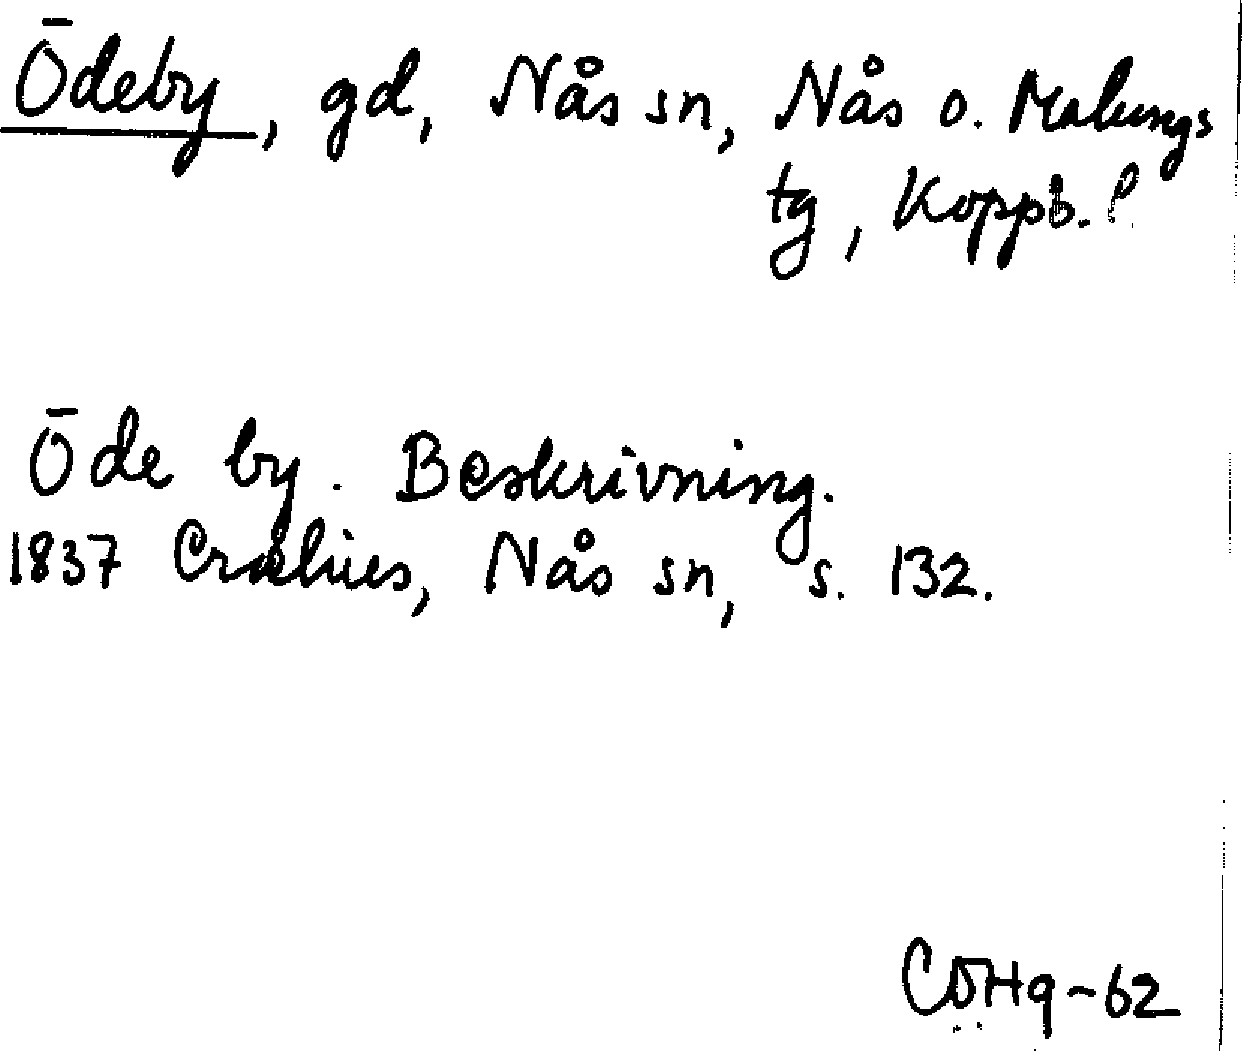 Ödeby, gd, Nås sn, Nås o. Malungs
tg, Koppb. l
Öde by. Beskrivning.
1837 Crælius, Nås sn, s. 132.
CÖHg-62